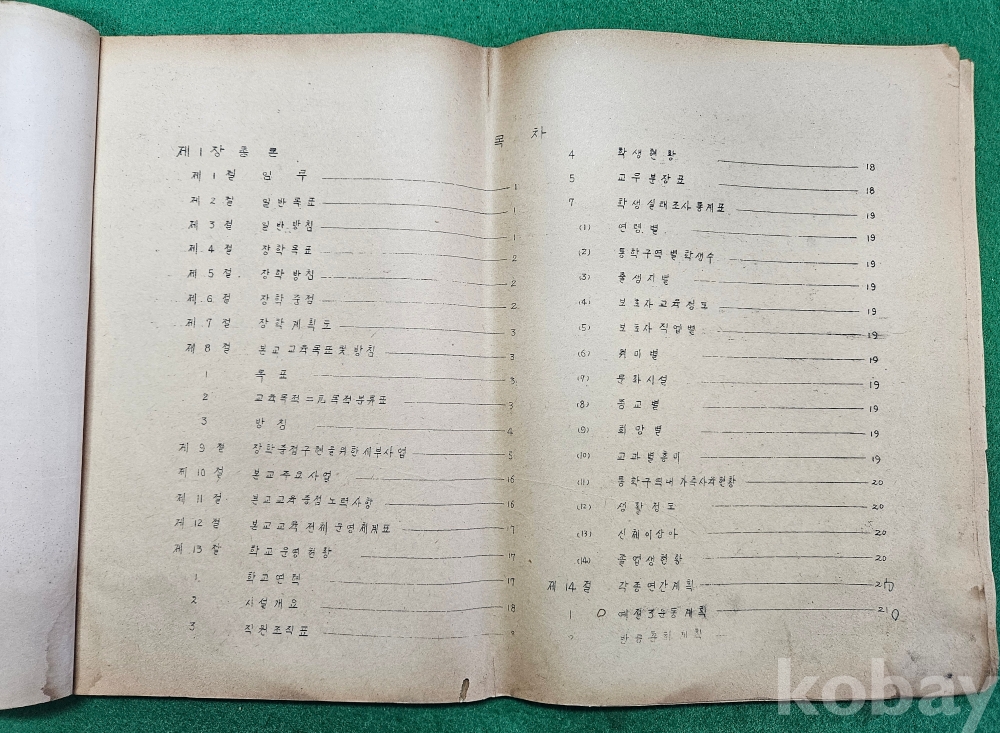 목 차
제 1 장 총 론
제 1 절 임 무 1
제 2 절 일반목표 1
제 3 절 일반방침 1
제 4 절 장학목표 2
제 5 절 장학방침 2
제 6 절 장학중점 2
제 7 절 장학계획표 3
제 8 절 본교교육목표및방침 3
1 목 표 3
2 교육목적 二元목적분류표 3
3 방 침 4
제 9 절 장학중점구현을위한세부사업 5
제 10 절 본교주요사업 16
제 11 절 본교교육중점노력사항 16
제 12 절 본교교육전체운영체계표 17
제 13 절 학교운영현황 17
1. 학교연혁 17
2 시설개요 18
3 직원조직표
4 학생현황 18
5 교무분장표 18
7 학생실태조사통계표 19
(1) 연령별 19
(2) 통학구역별학생수 19
(3) 출생지별 19
(4) 보호자교육정도 19
(5) 보호자직업별 19
(6) 취미별 19
(7) 문화시설 19
(8) 종교별 19
(9) 희망별 19
(10) 교과별흥미 19
(11) 통학구역내 가족사회현황 20
(12) 성활정도 20
(13) 신체이상아 20
(14) 졸업생현황 20
제 14 절 각종연간계획 20
1 계획 210
계획
kobay